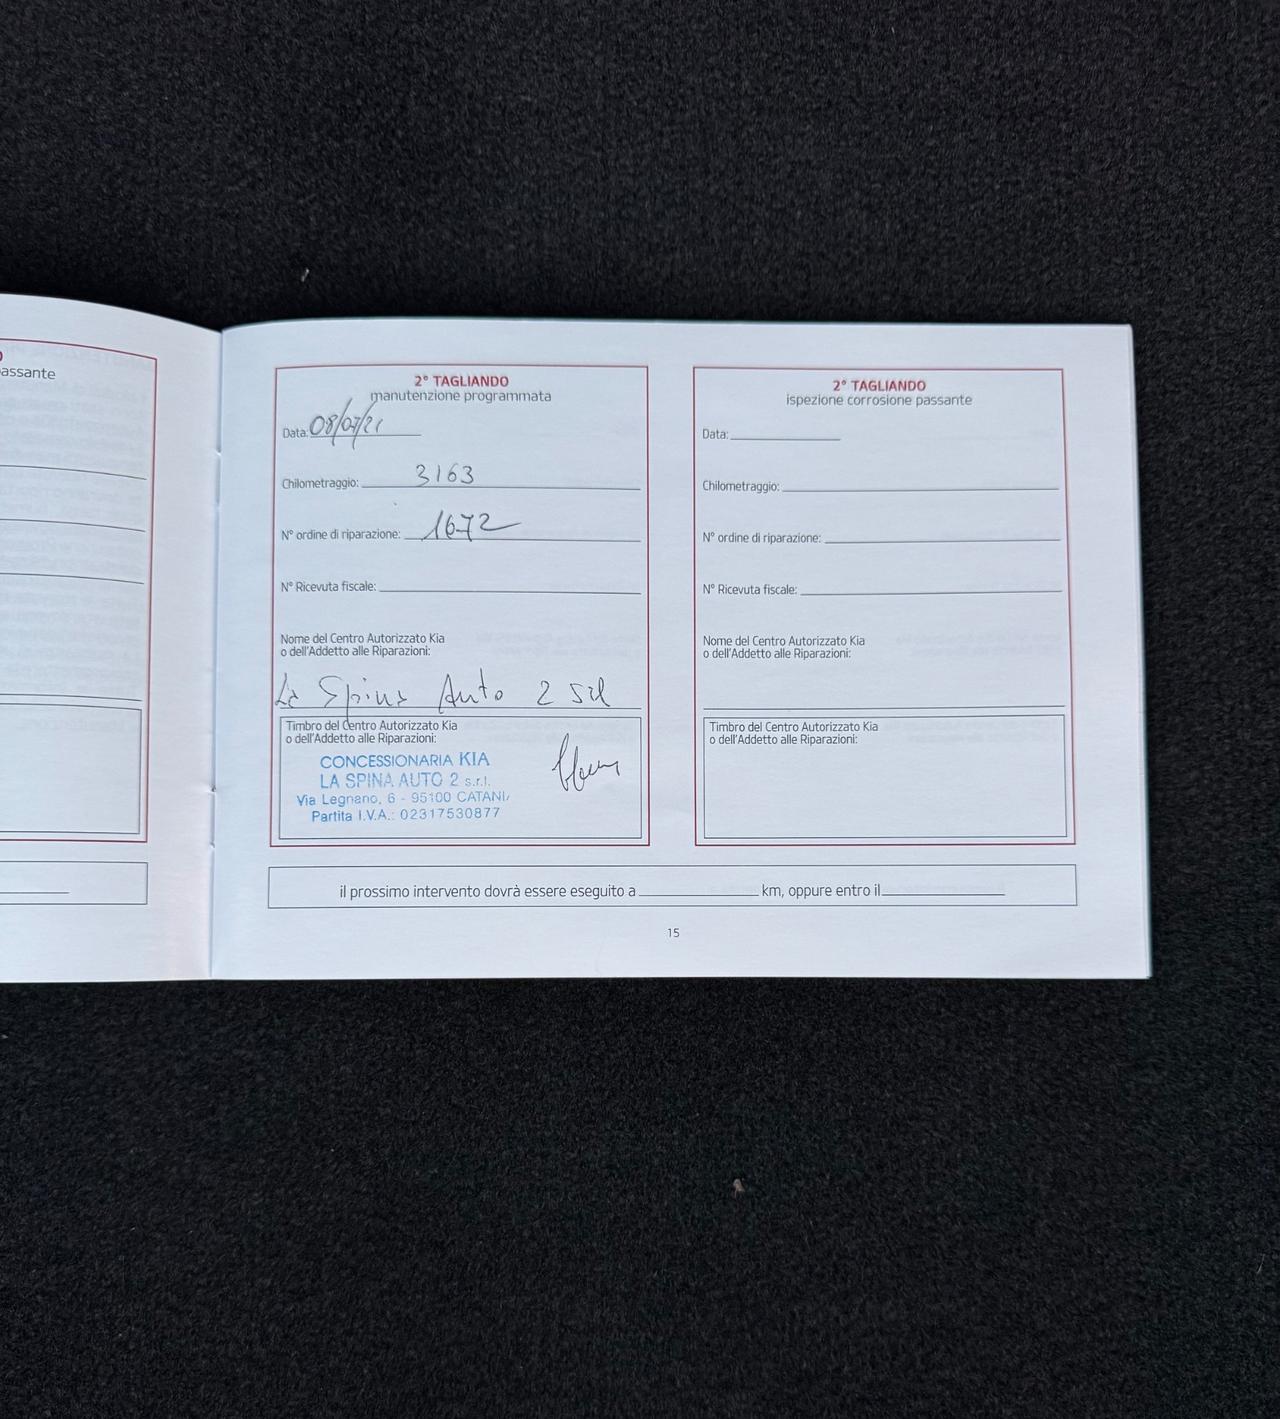 assante
2° TAGLIANDO
manutenzione programmata
Data: 08/07/21
Chilometraggio: 3163
N° ordine di riparazione: 1672
N° Ricevuta fiscale:
Nome del Centro Autorizzato Kia
o dell'Addetto alle Riparazioni:
La Spina Auto 2 srl
Timbro del Centro Autorizzato Kia
o dell'Addetto alle Riparazioni:
CONCESSIONARIA KIA
LA SPINA AUTO 2 s.r.l.
Via Legnano, 6 - 95100 CATANI
Partita I.V.A.: 02317530877
2° TAGLIANDO
ispezione corrosione passante
Data:
Chilometraggio:
N° ordine di riparazione:
N° Ricevuta fiscale:
Nome del Centro Autorizzato Kia
o dell'Addetto alle Riparazioni:
Timbro del Centro Autorizzato Kia
o dell'Addetto alle Riparazioni:
il prossimo intervento dovrà essere eseguito a km, oppure entro il
15